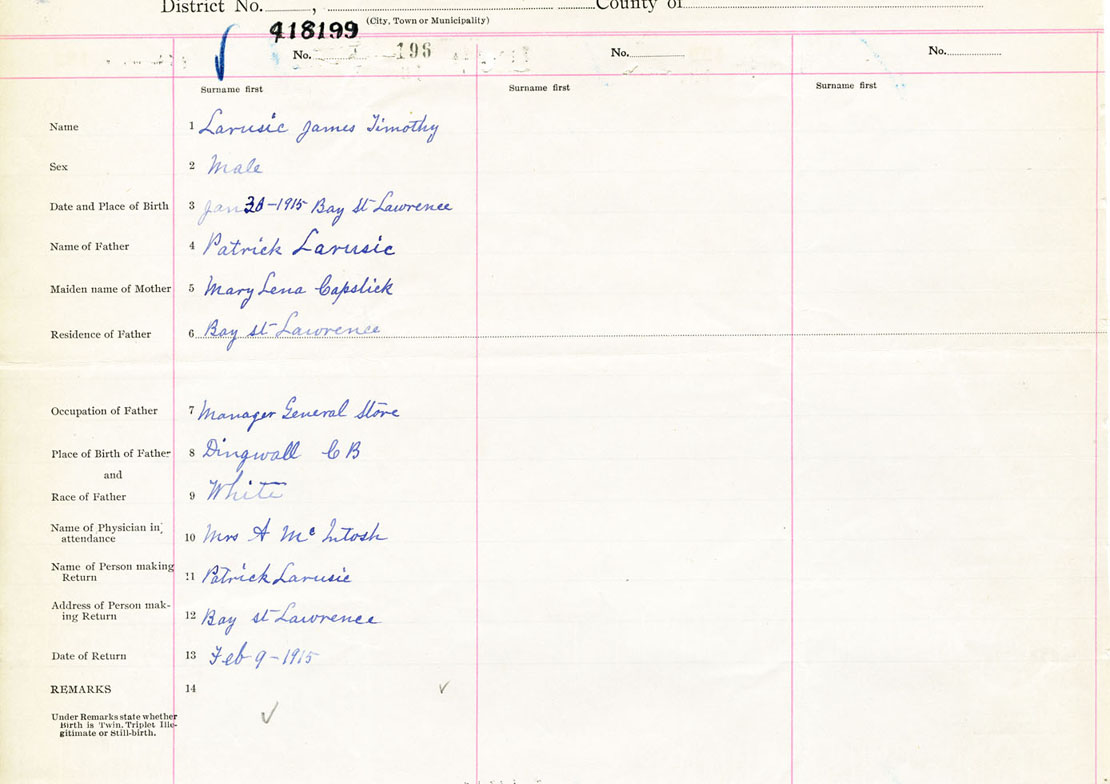 District No. , County of
(City, Town or Municipality)
418199
No. 196 No. No.
Surname first Surname first Surname first
Name 1 Larusic James Timothy
Sex 2 Male
Date and Place of Birth 3 Jan 30-1915 Bay St Lawrence
Name of Father 4 Patrick Larusic
Maiden name of Mother 5 Mary Lena Capslick
Residence of Father 6 Bay st Lawrence
Occupation of Father 7 Manager General Store
Place of Birth of Father 8 Dingwall C B
and
Race of Father 9 White
Name of Physician in
attendance 10 Mrs A Mc Intosh
Name of Person making
Return 11 Patrick Larusic
Address of Person mak-
ing Return 12 Bay st Lawrence
Date of Return 13 Feb 9-1915
REMARKS 14
Under Remarks state whether
Birth is Twin. Triplet Ille-
gitimate or Still-birth.